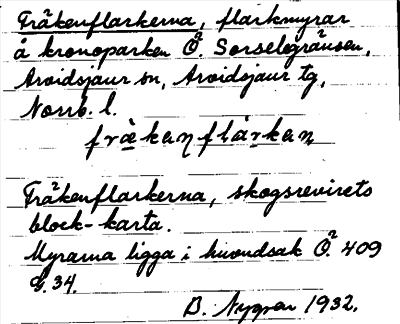 Fräkenflarkerna, flarkmyrar
å kronoparken Ö. Sorselegränsen,
Arvidsjaur sn, Arvidsjaur tg,
Norrb. l.
frækanflarkan
Fräkenflarkerna, skogsrevirets
block-karta.
Myrarna ligga i huvudsak Ö. 409
G. 34.
B. Nygren 1932.